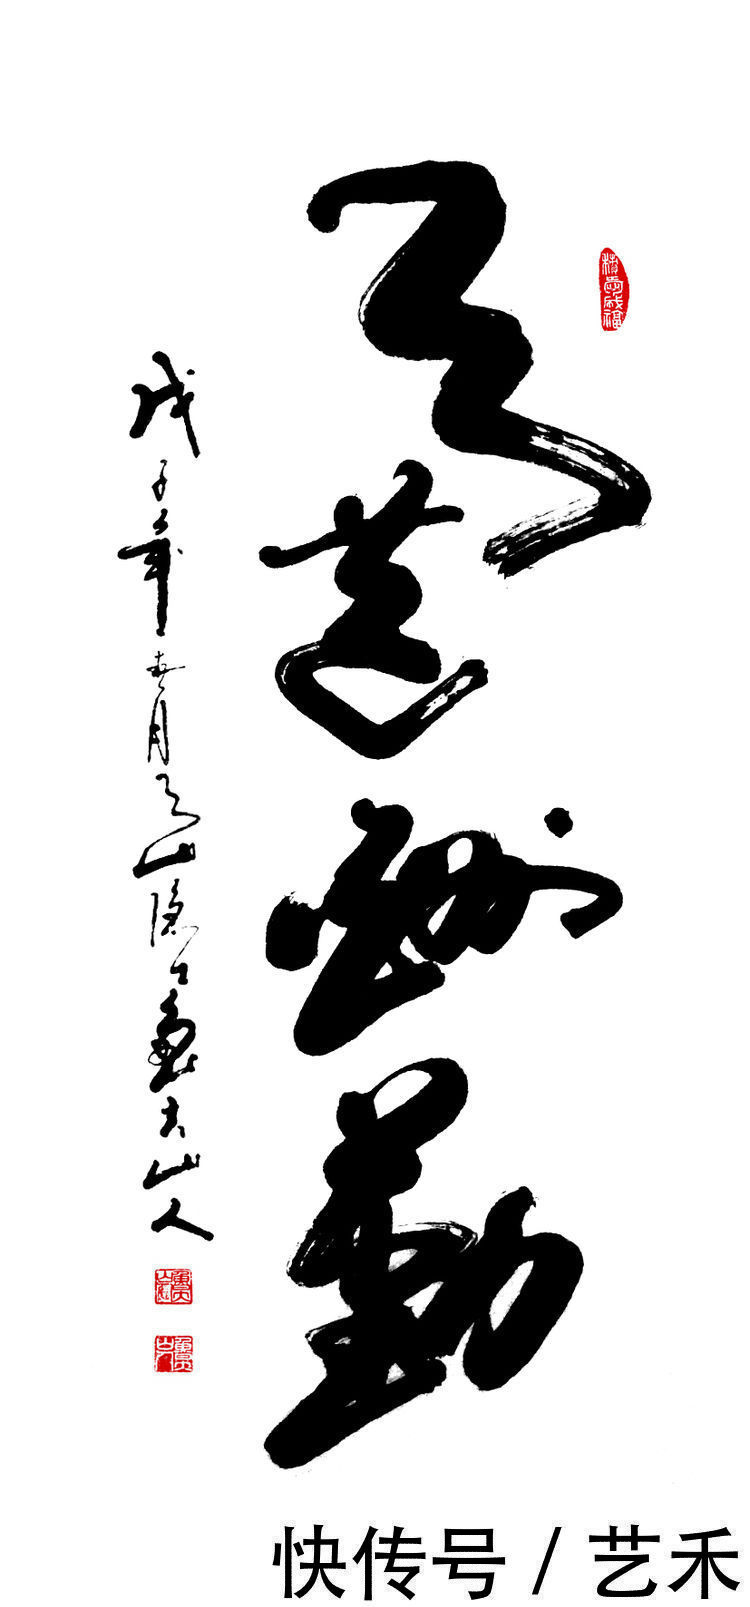 天道酬勤
戊子年春月天山隐士 大山人
快传号 / 艺禾